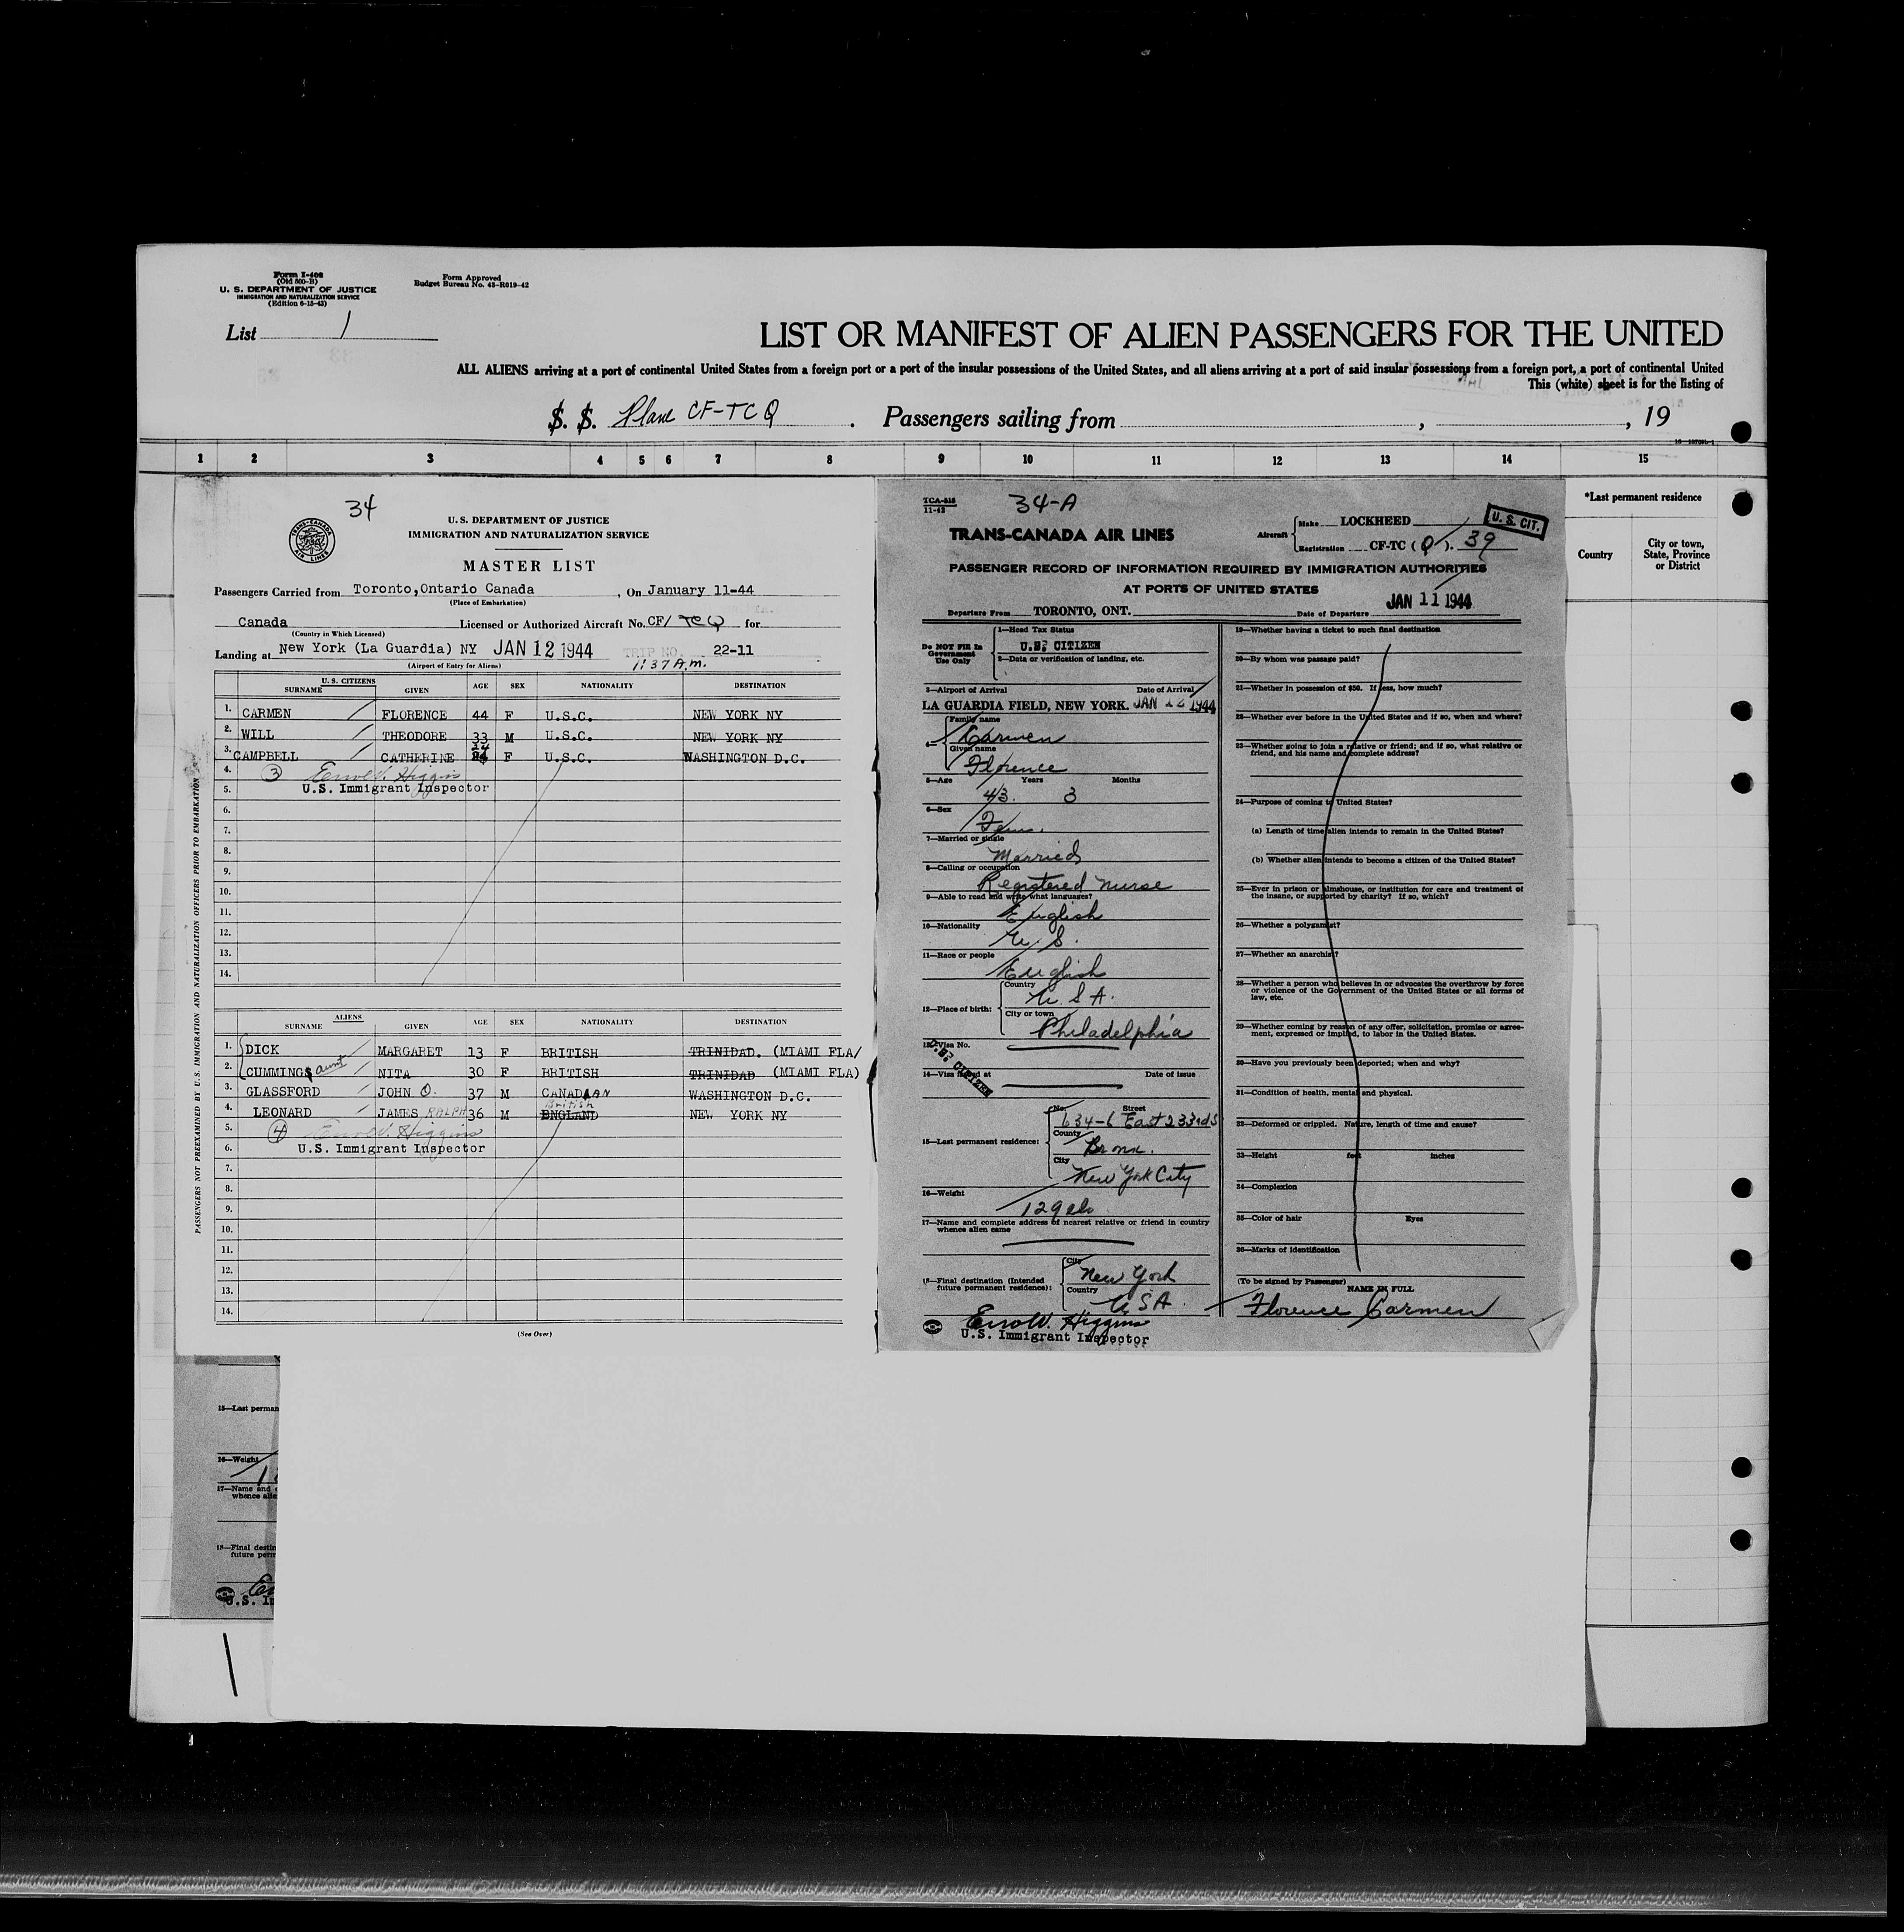 Form I-402
(Old 500-B)
U. S. DEPARTMENT OF JUSTICE
IMMIGRATION AND NATURALIZATION SERVICE
(Edition 6-15-43)
Form Approved
Budget Bureau No. 43-R019-42
List 1
LIST OR MANIFEST OF ALIEN PASSENGERS FOR THE UNITED
ALL ALIENS arriving at a port of continental United States from a foreign port or a port of the insular possessions of the United States, and all aliens arriving at a port of said insular possessions from a foreign port, a port of continental United
This (white) sheet is for the listing of
S. S. Plane CF-TCQ . Passengers sailing from , , 19
1 2 3 4 5 6 7 8 9 10 11 12 13 14 15
34
TRANS-CANADA AIR LINES
U. S. DEPARTMENT OF JUSTICE
IMMIGRATION AND NATURALIZATION SERVICE
MASTER LIST
Passengers Carried from Toronto,Ontario Canada , On January 11-44
(Place of Embarkation)
Canada Licensed or Authorized Aircraft No. CF/ TCQ for
(Country in Which Licensed)
Landing at New York (La Guardia) NY JAN 12 1944 TRIP NO. 22-11
(Airport of Entry for Aliens) 1:37 A.m.
PASSENGERS NOT PREEXAMINED BY U.S. IMMIGRATION AND NATURALIZATION OFFICERS PRIOR TO EMBARKATION
U. S. CITIZENS
SURNAME GIVEN AGE SEX NATIONALITY DESTINATION
1. CARMEN FLORENCE 44 F U.S.C. NEW YORK NY
2. WILL THEODORE 33 M U.S.C. NEW YORK NY
3. CAMPBELL CATHERINE 34 F U.S.C. WASHINGTON D.C.
4. 3 Erno W. Higgins
5. U.S. Immigrant Inspector
6.
7.
8.
9.
10.
11.
12.
13.
14.
ALIENS
SURNAME GIVEN AGE SEX NATIONALITY DESTINATION
1. DICK MARGARET 13 F BRITISH TRINIDAD. (MIAMI FLA/
2. CUMMINGS aunt NITA 30 F BRITISH TRINIDAD (MIAMI FLA)
3. GLASSFORD JOHN O. 37 M CANADIAN WASHINGTON D.C.
British
4. LEONARD JAMES RALPH 36 M ENGLAND NEW YORK NY
5. 4 Erno W. Higgins
6. U.S. Immigrant Inspector
7.
8.
9.
10.
11.
12.
13.
14.
(See Over)
TCA-315
11-42
34-A
TRANS-CANADA AIR LINES
Aircraft Make LOCKHEED
Registration CF-TC (Q). 39
U. S. CIT.
PASSENGER RECORD OF INFORMATION REQUIRED BY IMMIGRATION AUTHORITIES
AT PORTS OF UNITED STATES
Departure From TORONTO, ONT. Date of Departure JAN 11 1944
Do NOT Fill In
Government
Use Only
1—Head Tax Status
U.S. CITIZEN
2—Data or verification of landing, etc.
3—Airport of Arrival Date of Arrival
LA GUARDIA FIELD, NEW YORK. JAN 12 1944
4— Family name
Carmen
Given name
Florence
5—Age Years Months
43. 3
6—Sex
Fem.
7—Married or single
Married
8—Calling or occupation
Registered Nurse
9—Able to read and write what languages?
English
10—Nationality
U. S.
11—Race or people
English
12—Place of birth: Country
U. S A.
City or town
Philadelphia
13—Visa No.
U.S. CITIZEN
14—Visa issued at Date of issue
15—Last permanent residence: No. Street
634-6 East 233rd S
County
Bronx.
City
New York City
16—Weight
129 lb
17—Name and complete address of nearest relative or friend in country
whence alien came
18—Final destination (Intended
future permanent residence): City
New York
Country
USA.
Erno W. Higgins
U.S. Immigrant Inspector
19—Whether having a ticket to such final destination
20—By whom was passage paid?
21—Whether in possession of $50. If less, how much?
22—Whether ever before in the United States and if so, when and where?
23—Whether going to join a relative or friend; and if so, what relative or
friend, and his name and complete address?
24—Purpose of coming to United States?
(a) Length of time alien intends to remain in the United States?
(b) Whether alien intends to become a citizen of the United States?
25—Ever in prison or almshouse, or institution for care and treatment of
the insane, or supported by charity? If so, which?
26—Whether a polygamist?
27—Whether an anarchist?
28—Whether a person who believes in or advocates the overthrow by force
or violence of the Government of the United States or all forms of
law, etc.
29—Whether coming by reason of any offer, solicitation, promise or agree-
ment, expressed or implied, to labor in the United States.
30—Have you previously been deported; when and why?
31—Condition of health, mental and physical.
32—Deformed or crippled. Nature, length of time and cause?
33—Height feet inches
34—Complexion
35—Color of hair Eyes
36—Marks of identification
(To be signed by Passenger)
NAME IN FULL
Florence Carmen
*Last permanent residence
Country
City or town,
State, Province
or District
15—Last perman
16—Weight
17—Name and c
whence alie
18—Final destin
future perm
U.S. In